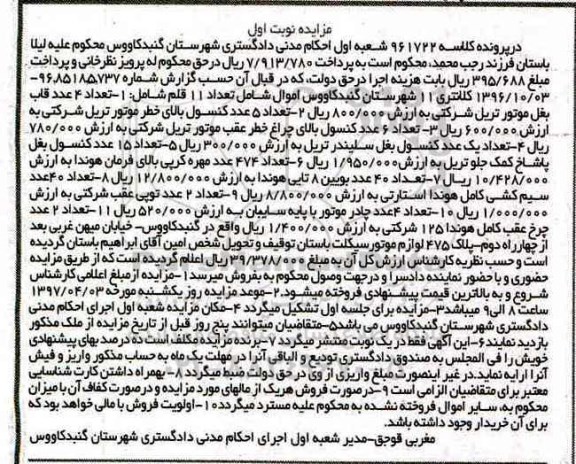 مزایده نوبت اول
درپرونده کلاسه ۹۶۱۷۲۲ شعبه اول احکام مدنی دادگستری شهرستان گنبدکاووس محکوم علیه لیلا
باستان فرزند رجب محمد، محکوم است به پرداخت ۷/۹۱۳/۷۸۰ ریال درحق محکوم له پرویز نظرخانی و پرداخت
مبلغ ۳۹۵/۶۸۸ ریال بابت هزینه اجرا درحق دولت، که در قبال آن حسب گزارش شماره ۹۶،۸۵۱۸۵،۷۳۷-
۱۳۹۶/۱۰/۰۳ کلانتری ۱۱ شهرستان گنبدکاووس اموال شامل تعداد ۱۱ قلم شامل: ۱-تعداد ۴ عدد قاب
بغل موتور تریل شرکتی به ارزش ۸۰۰/۰۰۰ ریال ۲-تعداد ۵ عدد کنسول بالای خطر موتور تریل شرکتی به
ارزش ۶۰۰/۰۰۰ ریال ۳- تعداد ۶ عدد کنسول بالای چراغ خطر عقب موتور تریل شرکتی به ارزش ۷۸۰/۰۰۰
ریال ۴-تعداد یک عدد کنسول بغل سلیندر تریل به ارزش ۳۰۰/۰۰۰ ریال ۵-تعداد ۱۵ عدد کنسول بغل
پاشاخ کمک جلو تریل به ارزش ۱/۹۵۰/۰۰۰ ریال ۶-تعداد ۴۷۴ عدد مهره کرپی بالای فرمان هوندا به ارزش
۱۰/۴۲۸/۰۰۰ ریال ۷-تعداد ۴۰ عدد بوبین ۸ تایی هوندا به ارزش ۱۲/۸۰۰/۰۰۰ ریال ۸-تعداد ۴۰ عدد
سیم کشی کامل هوندا استارتی به ارزش ۸/۸۰۰/۰۰۰ ریال ۹-تعداد ۲ عدد توپی عقب شرکتی به ارزش
۱/۰۰۰/۰۰۰ ریال ۱۰-تعداد ۴ عدد چادر موتور با پایه سایبان به ارزش ۵۲۰/۰۰۰ ریال ۱۱-تعداد ۲ عدد
چرخ عقب کامل هوندا ۱۲۵ شرکتی به ارزش ۱/۴۰۰/۰۰۰ ریال واقع در گنبدکاووس- خیابان میهن غربی بعد
از چهارراه دوم-پلاک ۴۷۵ لوازم موتورسیکلت باستان توقیف و تحویل شخص امین آقای ابراهیم باستان گردیده
است و حسب نظریه کارشناس ارزش کل آن به مبلغ ۳۹/۳۷۸/۰۰۰ ریال اعلام گردیده است که از طریق مزایده
حضوری و با حضور نماینده دادسرا و درجهت وصول محکوم به بفروش میرسد ۱-مزایده از مبلغ اعلامی کارشناس
شروع و به بالاترین قیمت پیشنهادی فروخته میشود.۲-موعد مزایده روز یکشنبه مورخه ۱۳۹۷/۰۴/۰۳
ساعت ۸ الی ۹ میباشد ۳-مزایده برای جلسه اول تشکیل میگردد ۴-مکان مزایده شعبه اول اجرای احکام مدنی
دادگستری شهرستان گنبدکاووس می باشد ۵-متقاضیان میتوانند پنج روز قبل از تاریخ مزایده از ملک مذکور
بازدید نمایند ۶-این آگهی فقط در یک نوبت منتشر میگردد ۷-برنده مزایده مکلف است ده درصد بهای پیشنهادی
خویش را فی المجلس به صندوق دادگستری تودیع و الباقی آنرا در مهلت یک ماه به حساب مذکور واریز و فیش
آنرا ارایه نماید.در غیر اینصورت مبلغ واریزی از وی در حق دولت ضبط میگردد ۸-بهمراه داشتن کارت شناسایی
معتبر برای متقاضیان الزامی است ۹-درصورت فروش هریک از مالهای مورد مزایده و درصورت کفاف آن با میزان
محکوم به، سایر اموال فروخته نشده به محکوم علیه مسترد میگردد ۱۰-اولویت فروش با مالی خواهد بود که
برای آن خریدار وجود داشته باشد.
مغربی قوجق-مدیر شعبه اول اجرای احکام مدنی دادگستری شهرستان گنبدکاووس